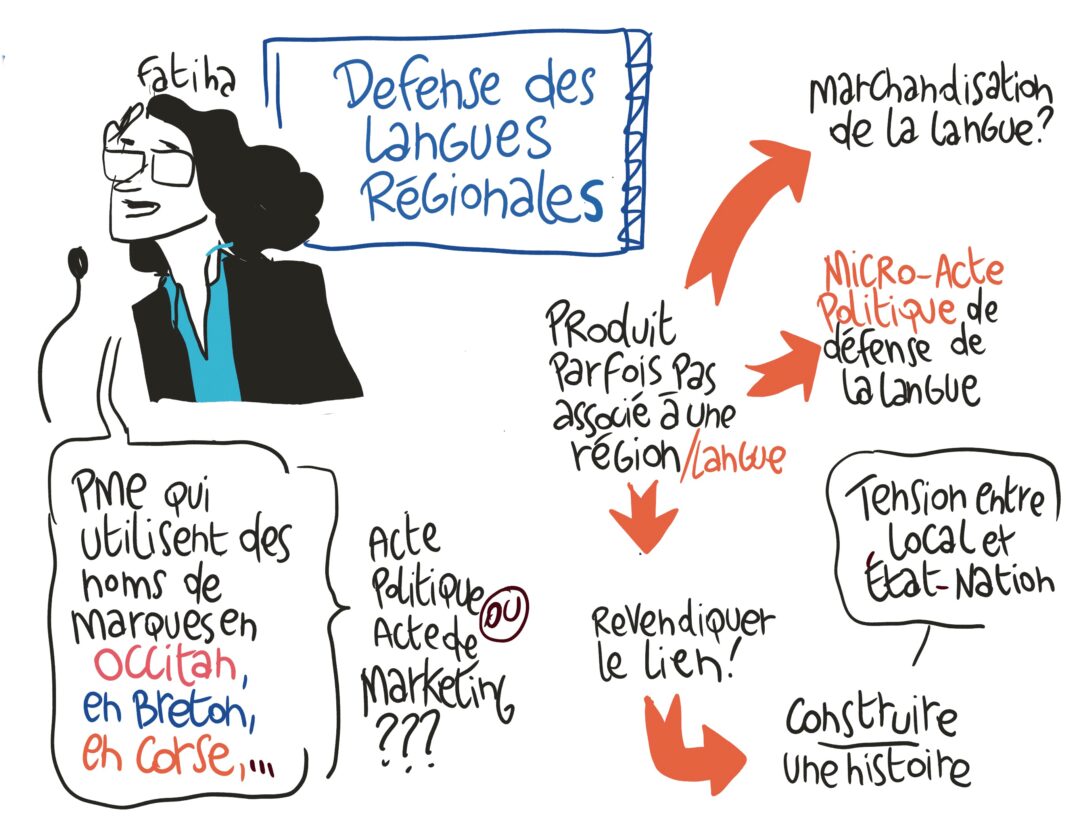 Fatiha
Defense des
Langues
Régionales
PME qui
utilisent des
noms de
marques en
Occitan,
en Breton,
en Corse,...
Acte
Politique OU
Acte de
Marketing
???
Produit
Parfois pas
associé à une
région/langue
Marchandisation
de la langue?
Micro-Acte
Politique de
défense de
la langue
Revendiquer
le lien!
Tension entre
Local et
État-Nation
Construire
une histoire